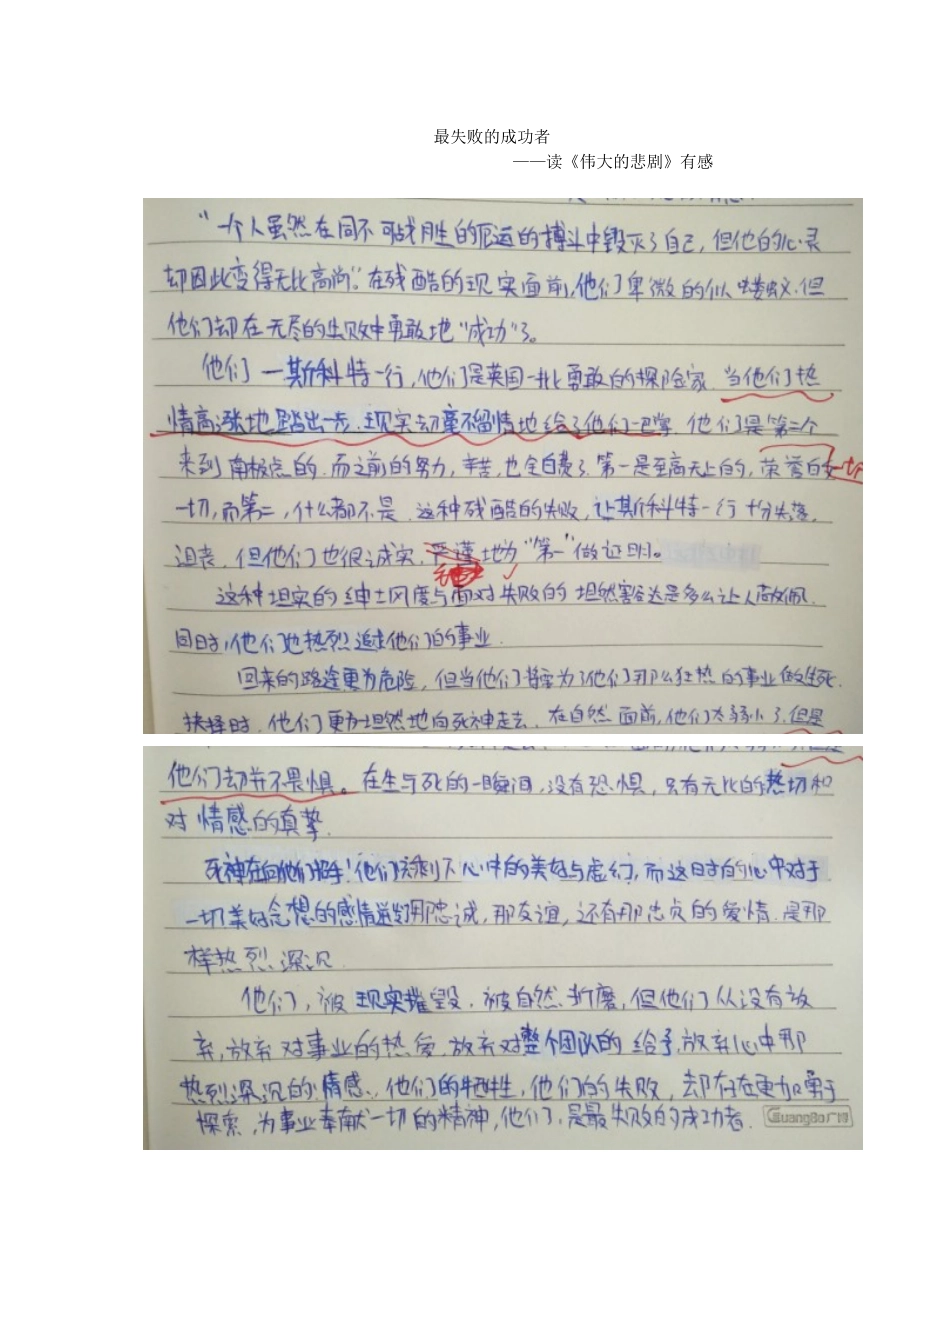 最失败的成功者
——读《伟大的悲剧》有感
“一个人虽然在同不可战胜的厄运的搏斗中毁灭了自己，但他的心灵
却因此变得无比高尚”。在残酷的现实面前，他们卑微的似蝼蚁，但
他们却在无尽的失败中勇敢地“成功”了。
他们一斯科特一行，他们是英国一批勇敢的探险家，当他们热
情高涨地踏出一步，现实却毫不留情地给了他们一巴掌，他们是第二个
来到南极点的，而之前的努力，辛苦，也全白费了，第一是至高无上的，荣誉的
一切，而第二，什么都不是，这种残酷的失败，让斯科特一行十分失落，
沮丧，但他们也很诚实，严谨地为“第一”做证明。
这种坦实的绅士风度与面对失败的坦然豁达是多么让人敬佩，
同时，他们也热烈追求他们的事业。
回来的路途更为危险，但当他们将要为了他们那么狂热的事业做生死
抉择时，他们更加坦然地向死神走去，在自然面前，他们太弱小了，但是
他们却并不畏惧。在生与死的一瞬间，没有恐惧，只有无比的热切和
对情感的真挚。
死神在向他们招手！他们只剩下心中的美好与虚幻，而这时的心中对于
一切美好念想的感情迸发，那忠诚，那友谊，还有那忠贞的爱情，是那
样热烈深沉。
他们，被现实摧毁，被自然折磨，但他们从没有放
弃，放弃对事业的热爱，放弃对整个团队的给予，放弃心中那
热烈深沉的情感，他们的牺牲，他们的失败，却存在更加勇于
探索，为事业奉献一切的精神，他们，是最失败的成功者。
GuangBo广博